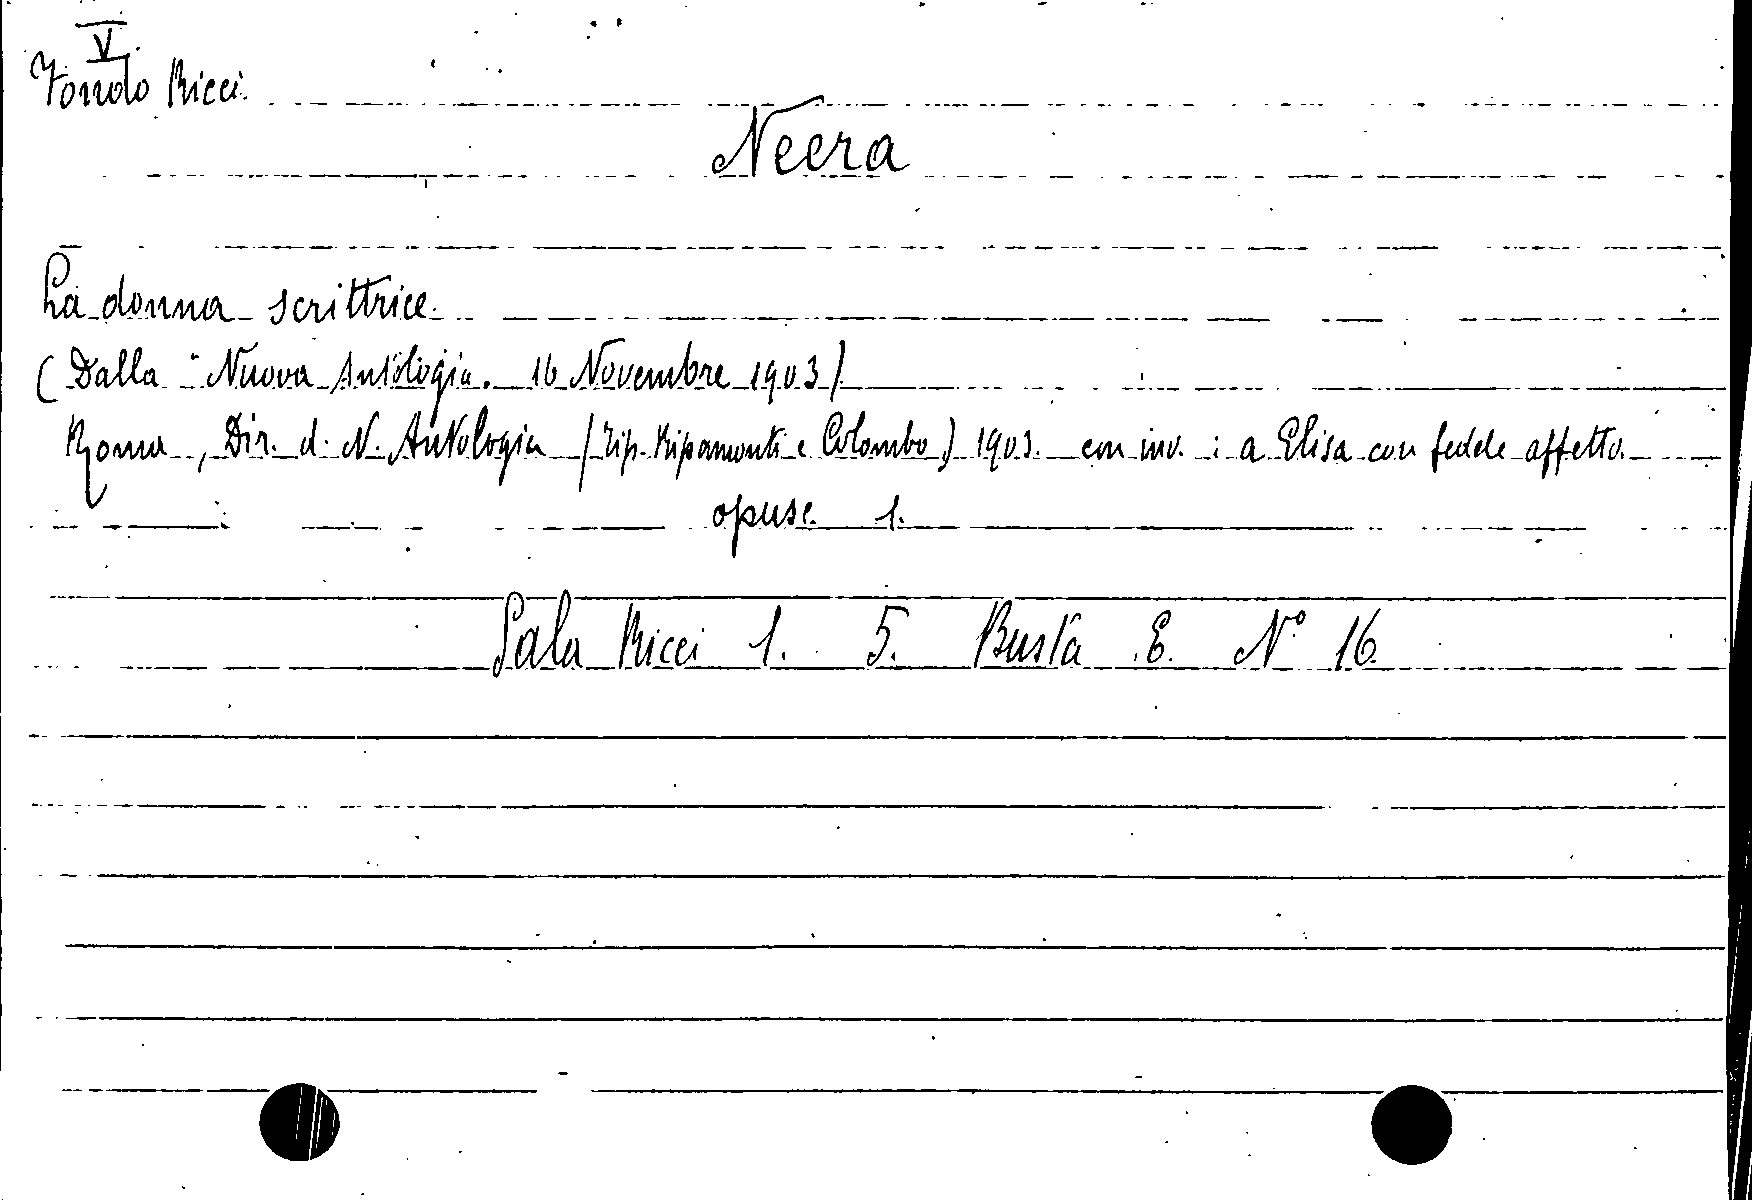 V
Fondo Ricci.
Neera
La donna scrittrice.
(Dalla "Nuova Antologia. 16 Novembre 1903)
Roma, Dir. d. N. Antologia (Tip. Ripamonti e Colombo) 1903. con inv. : a Elisa con fedele affetto.
opusc. 1.
Sala Ricci 1. 5. Busta E. N° 16